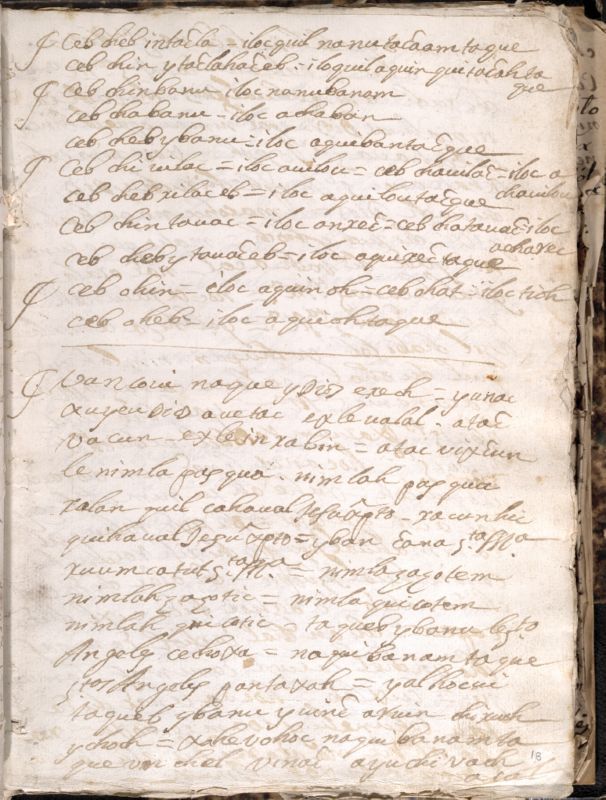 ¶ Ceb cheb intacla = iloc quil nanutacaam taque
ceb chin ytaclahaceb = iloquil aquin quitacah ta
que
¶ Ceb chinbanu iloc nanubanam
ceb chabanu = iloc achaban
ceb cheb ybanu = iloc aquiban tacque
¶ Ceb chi vilac = iloc avilou = ceb chavilac = iloc a
chavilou
ceb cheb xilaceb = iloc aquilou tacque
ceb chin tavac = iloc anxec = ceb chatavac = iloc
achaxec
ceb cheb ytavaceb = iloc aquixec taque
¶ ceb chin = iloc aquin oh = ceb chat = iloc tich
ceb cheb = iloc aquioh taque
¶ Van coui naque y Dios exech = yunac
xuyeu Dios avetac exle valal . atac
vacun = exle inrabin = atac vixcun
le nimla pasqua . nimlah pasqua
ralan quil cahaval Jesu xpto = xacunhi
quihaval Jesu xpto = yban cana s.ta Ma
xuum catut s.ta Ma = nimla zazotem
nimlah zazotic = nimla quicotem
nimlah quicotic = taqueb ybanu le s.to
Angeles cechoxa = naquibanam taque
s.tos Angeles pantaxah = yalhocui
taqueb ybanu yuinc aruin chi xuch
ychoch = xchevohoc naquibanam ta
que vinchel vinac ayuchi vach
atal
18